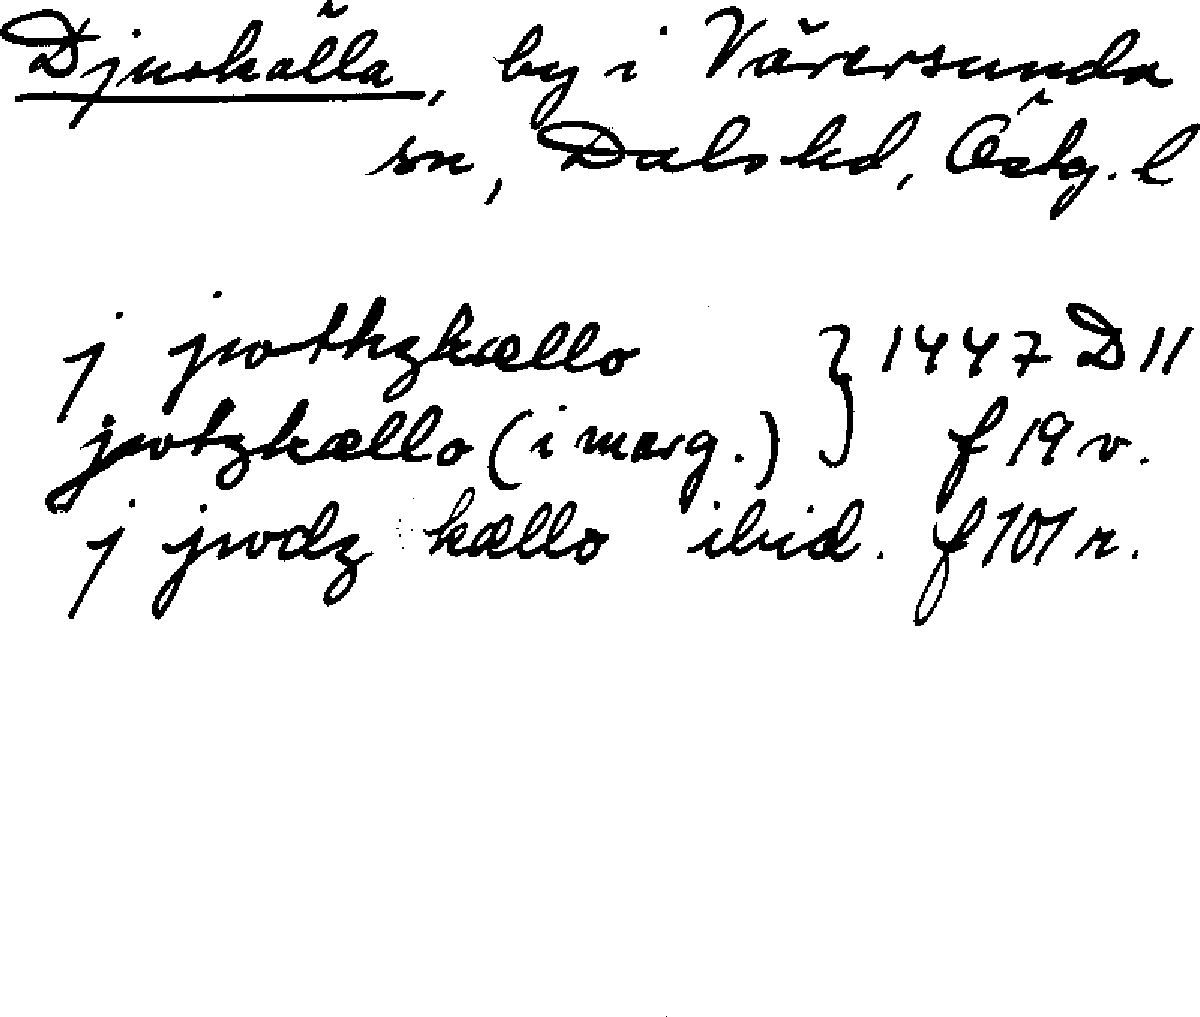 Djuskälla, by i Väversunda
sn, Dals hd, Östg. l
j jwthzkællo } 1447 D 11
jwtzkællo (i marg.) } f 19 v.
j jwdz kællo ibid. f 101 r.